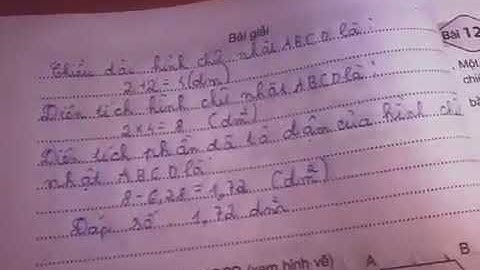 Bài giải
Chiều dài hình chữ nhật A.B.C.D. là:
2 + 2 = 4 (dm)
Diện tích hình chữ nhật A.B.C.D. là:
2 x 4 = 8 (dm²)
Diện tích phần đã tô đậm của hình chữ
nhật A.B.C.D. là:
8 - 6,28 = 1,72 (dm²)
Đáp số 1,72 dm²
Bài 12
Một
chiề
bằ
(xem hình vẽ)
A
B